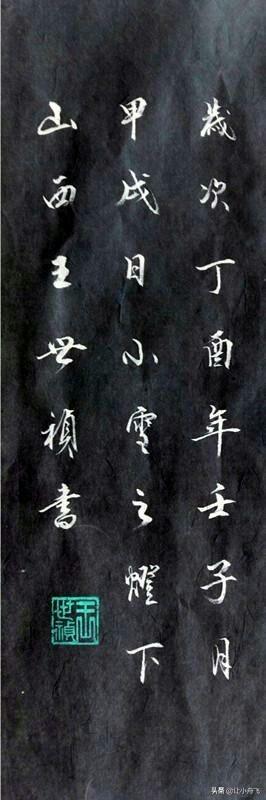 歲次丁酉年壬子月
甲戌日小雪之燈下
山西王世禎書
王世禎
头条 @让小舟飞